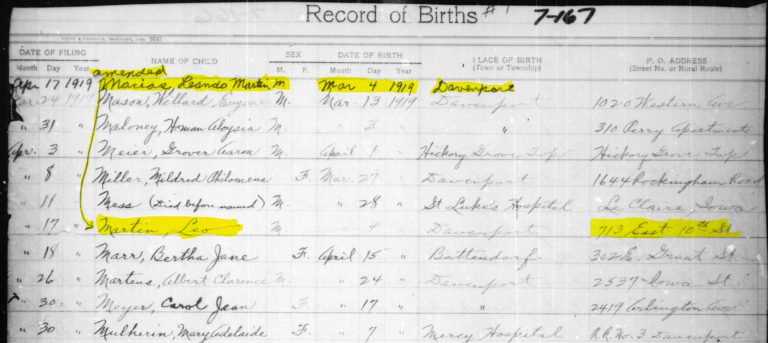 Record of Births #1 7-167
DATE OF FILING NAME OF CHILD SEX DATE OF BIRTH PLACE OF BIRTH P. O. ADDRESS
Month Day Year M. F. Month Day Year (Town or Township) (Street No. or Rural Route)
amended
Apr 17 1919 Macias, Leandro Martin M Mar 4 1919 Davenport
Mar 24 1919 Mason, Willard Eugene M. Mar. 13 1919 Davenport 1020 Western Ave
" 31 Maloney, Homan Aloysia M " 3 " " 310 Perry Apartments
Apr. 3 Meier, Grover Aaron M. April 1 Hickory Grove Twp Hickory Grove Twp
" 8 Miller, Mildred Philomena F. Mar. 27 Davenport 1644 Rockingham Road
" 11 Mess (Died before named) M " 28 St Luke's Hospital Le Claire, Iowa
" 17 Martin, Leo M " 4 Davenport 713 East 10th St
" 18 Marr, Bertha Jane F. April 15 Bettendorf 302 E. Grant St.
" 26 Martens, Albert Clarence M " 24 Davenport 2537 Iowa St.
" 30 Meyer, Carol Jean F. " 17 " 2419 Arlington Ave
" 30 Mulherin, Mary Adelaide F. " 7 Mercy Hospital R.R. No. 3 Davenport